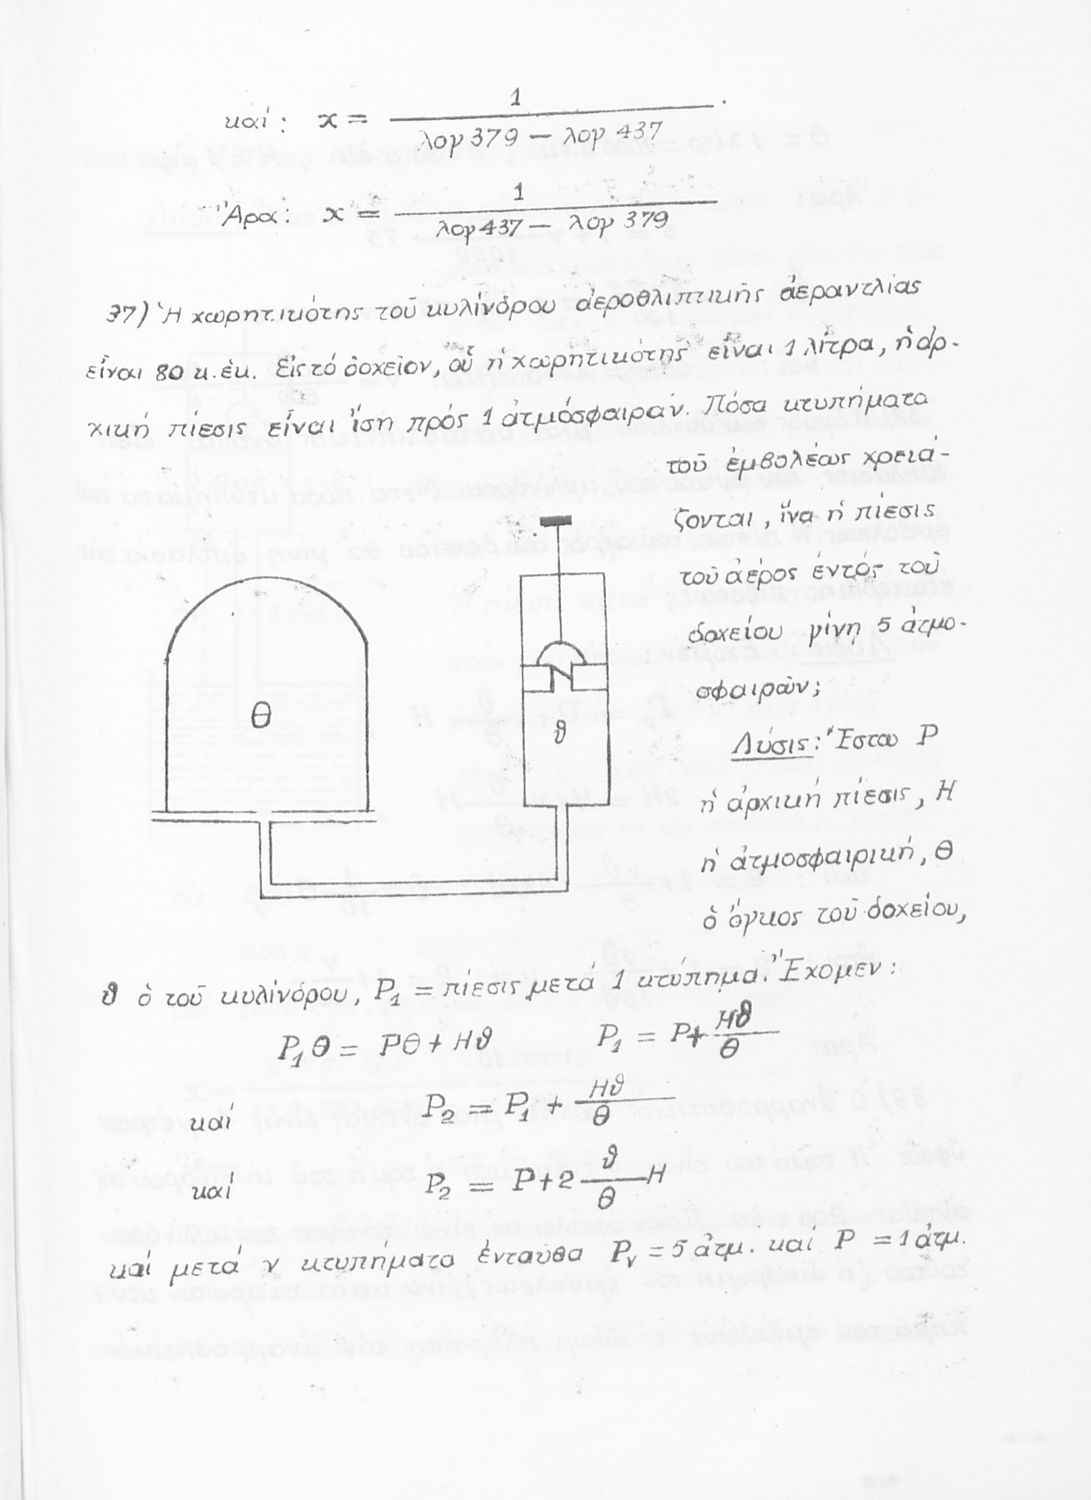 καί: x = 1 / (λογ 379 – λογ 437) .
Ἄρα: x = 1 / (λογ 437 – λογ 379)
37) Ἡ χωρητικότης τοῦ κυλίνδρου ἀεροθλιπτικῆς ἀεραντλίας
εἶναι 80 κ.ἑκ. Εἰς τό δοχεῖον, οὗ ἡ χωρητικότης εἶναι 1 λίτρα, ἡ ἀρ-
χική πίεσις εἶναι ἴση πρός 1 ἀτμόσφαιραν. Πόσα κτυπήματα
τοῦ ἐμβολέως χρειά-
ζονται, ἵνα ἡ πίεσις
τοῦ ἀέρος ἐντός τοῦ
δοχείου γίνῃ 5 ἀτμο-
σφαιρῶν;
Θ
θ
Λύσις: Ἔστω P
ἡ ἀρχική πίεσις, H
ἡ ἀτμοσφαιρική, Θ
ὁ ὄγκος τοῦ δοχείου,
ϑ ὁ τοῦ κυλίνδρου, P₁ = πίεσις μετά 1 κτύπημα. Ἔχομεν:
P₁Θ = PΘ + Hϑ P₁ = P + Hϑ/Θ
καί P₂ = P₁ + Hϑ/Θ
καί P₂ = P + 2 ϑ/Θ H
καί μετά ν κτυπήματα ἐνταῦθα Pᵥ = 5 ἀτμ. καί P = 1 ἀτμ.